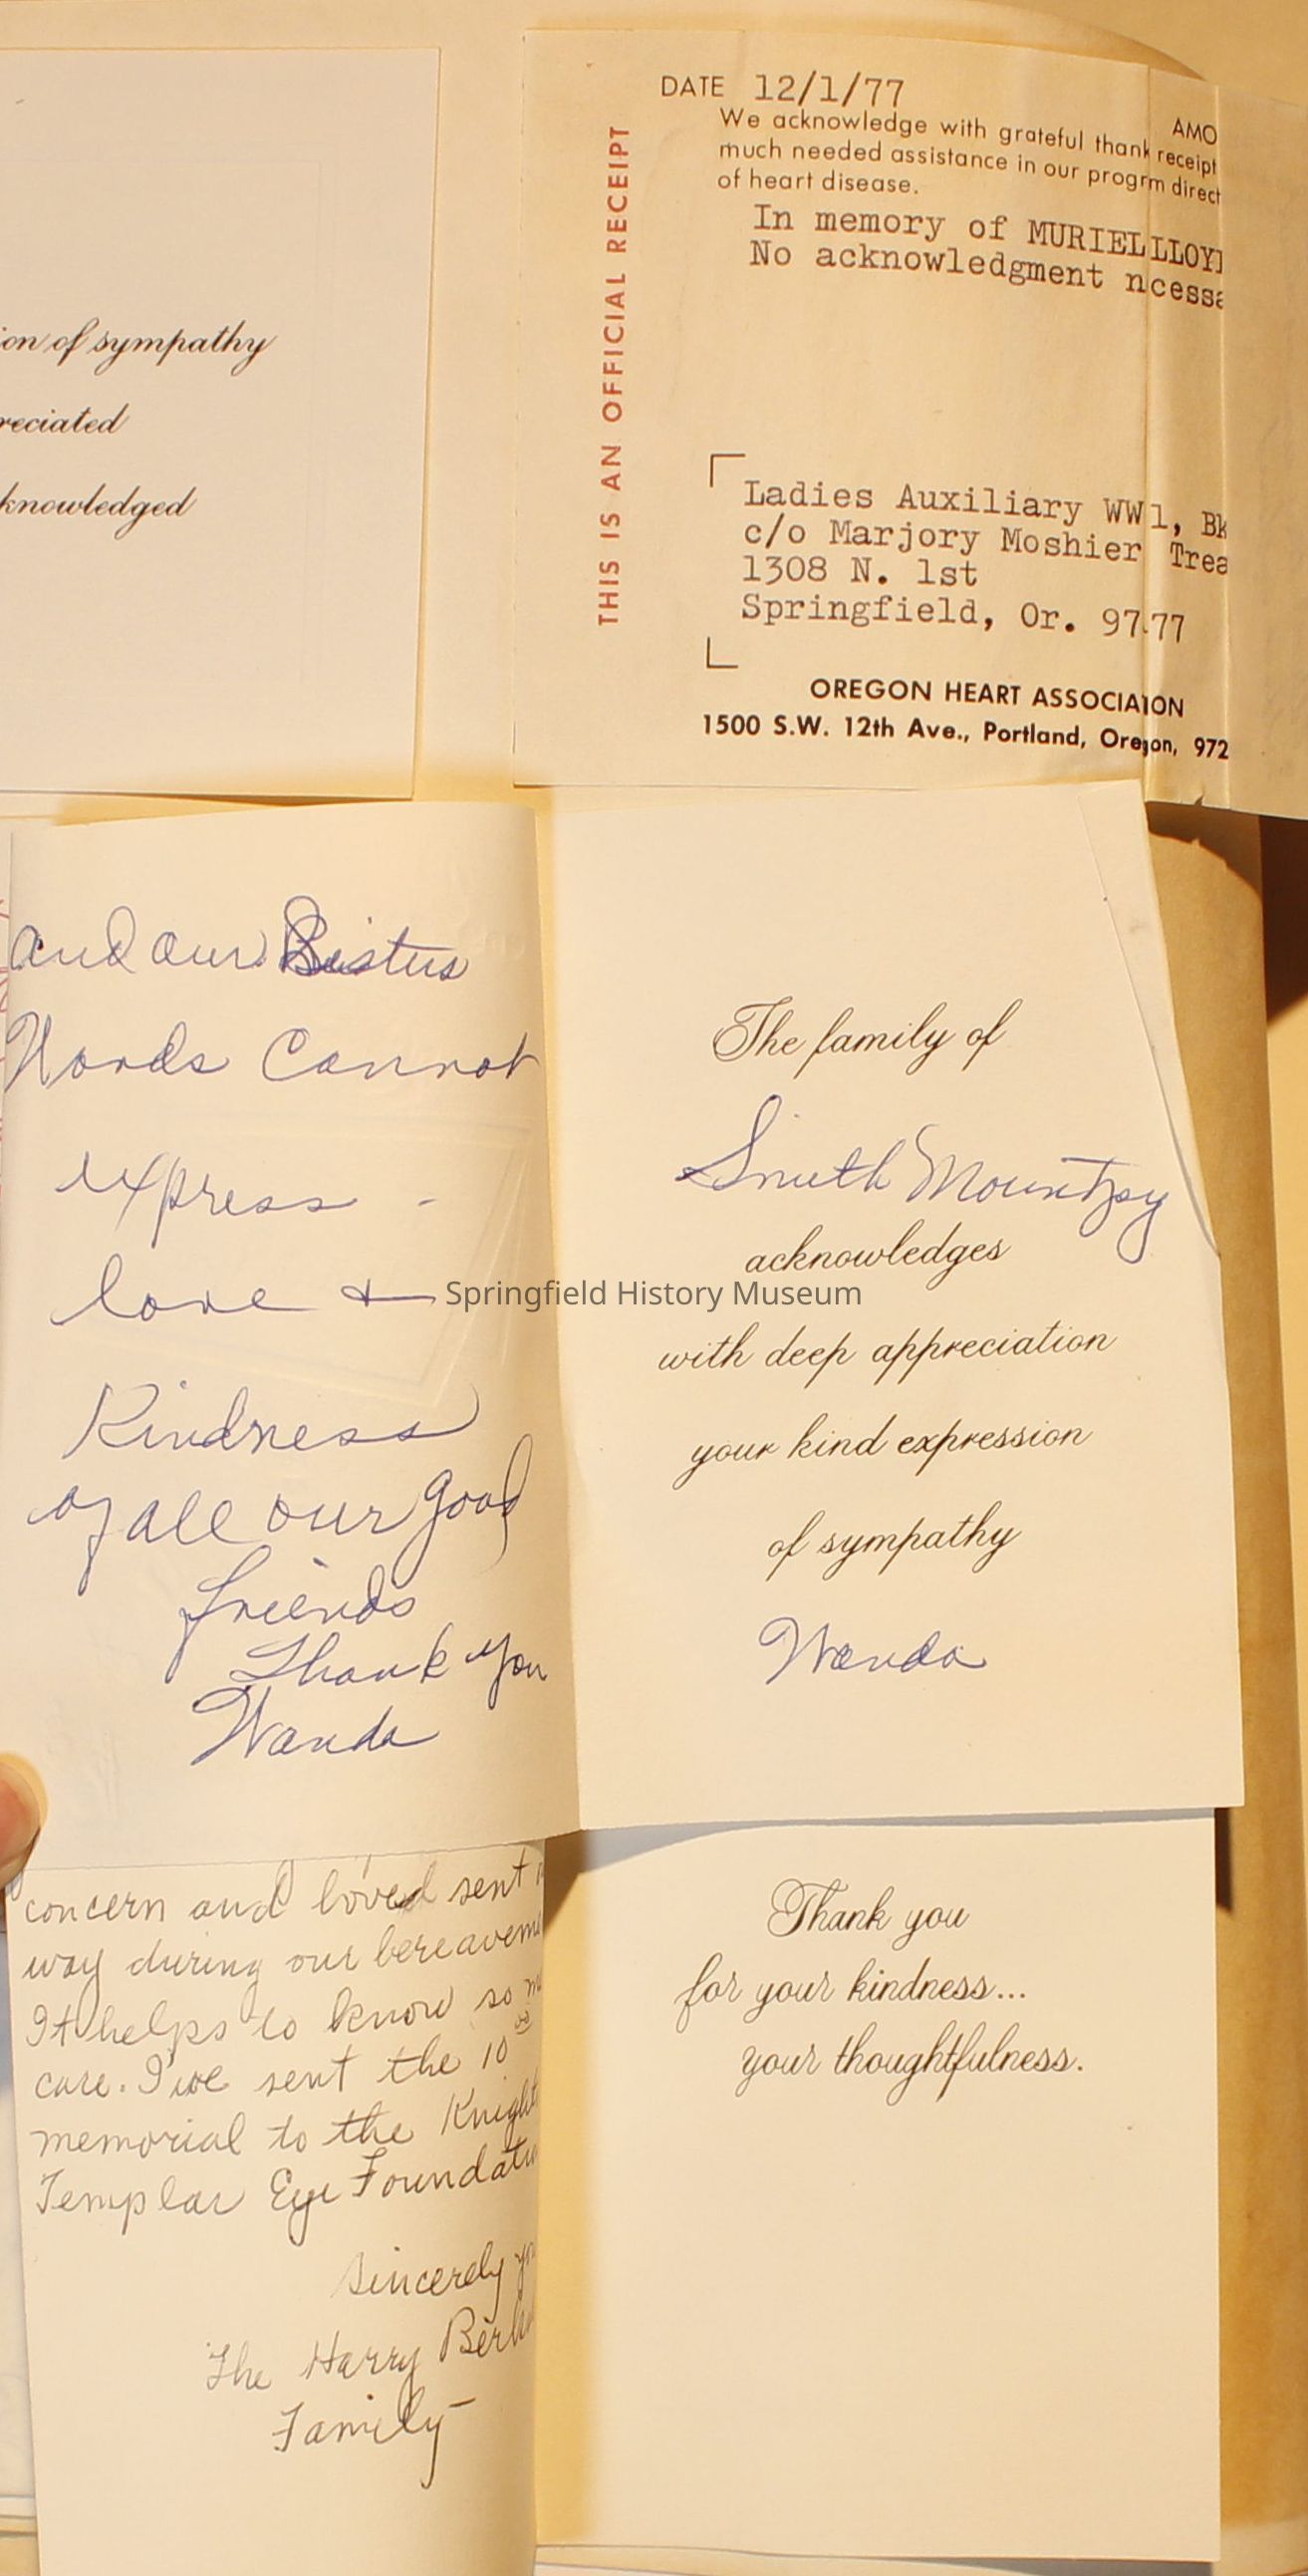 ion of sympathy
reciated
knowledged
THIS IS AN OFFICIAL RECEIPT
DATE 12/1/77
AMO
We acknowledge with grateful thank receipt
much needed assistance in our progrm direct
of heart disease.
In memory of MURIEL LLOY
No acknowledgment ncessa
Ladies Auxiliary WW1, Bk
c/o Marjory Moshier Trea
1308 N. 1st
Springfield, Or. 9777
OREGON HEART ASSOCIAION
1500 S.W. 12th Ave., Portland, Oregon, 972
and our
Words Cannot
express -
love +
Kindness
of all our good
friends
Thank you
Wanda
The family of
Smith
acknowledges
with deep appreciation
your kind expression
of sympathy
Wanda
Springfield History Museum
concern and loved sent
way during our bereavem
It helps to know so m
care. I've sent the 10 00
memorial to the Knight
Templar Eye Foundati
Sincerely yo
The Harry Ber
Family
Thank you
for your kindness...
your thoughtfulness.